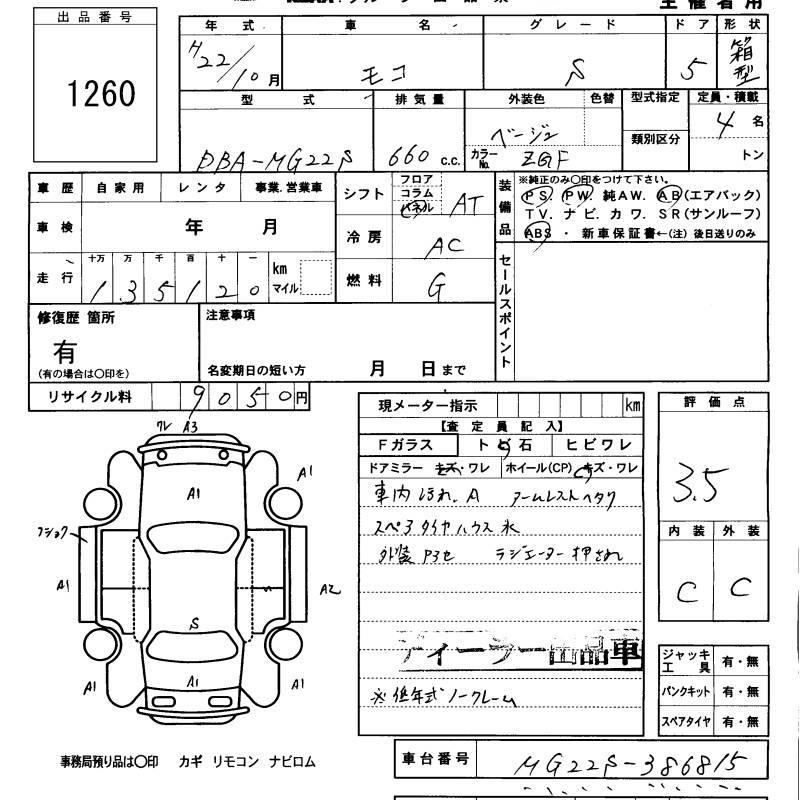 主催者用
出品番号
1260
年式 車名 グレード ドア 形状
H22/10月 モコ S 5 箱型
型式 排気量 外装色 色替 型式指定 定員・積載
類別区分
DBA-MG22S 660 c.c. ベージュ カラーNo. ZGF 4名
トン
車歴 自家用 レンタ 事業.営業車
シフト フロア コラム パネル AT
装備品 ※純正のみ〇印をつけて下さい。
PS. PW. 純AW. AB(エアバック)
TV. ナビ. カワ. SR(サンルーフ)
ABS ・ 新車保証書←(注) 後日送りのみ
車検 年 月
冷房 AC
走行 十万 万 千 百 十 一 km マイル
135120
燃料 G
セールスポイント
修復歴 箇所
有
(有の場合は〇印を)
注意事項
名変期日の短い方 月 日まで
リサイクル料 9050円
現メーター指示 km
【査定員記入】
Fガラス トビ石 ヒビワレ
ドアミラー キズ・ワレ ホイール(CP) キズ・ワレ
車内 汚れ.A アームレストヘタリ
スペアタイヤハウス 水
外装 Pヨセ ラジエーター押され
ディーラー出品車
※低年式ノークレーム
評価点
3.5
内装 外装
C C
ジャッキ工具 有・無
パンクキット 有・無
スペアタイヤ 有・無
ワレ A3
A1
A1
フショク
A1
A2
S
A1
A1
A1
事務局預り品は〇印 カギ リモコン ナビロム
車台番号 MG22S-386815